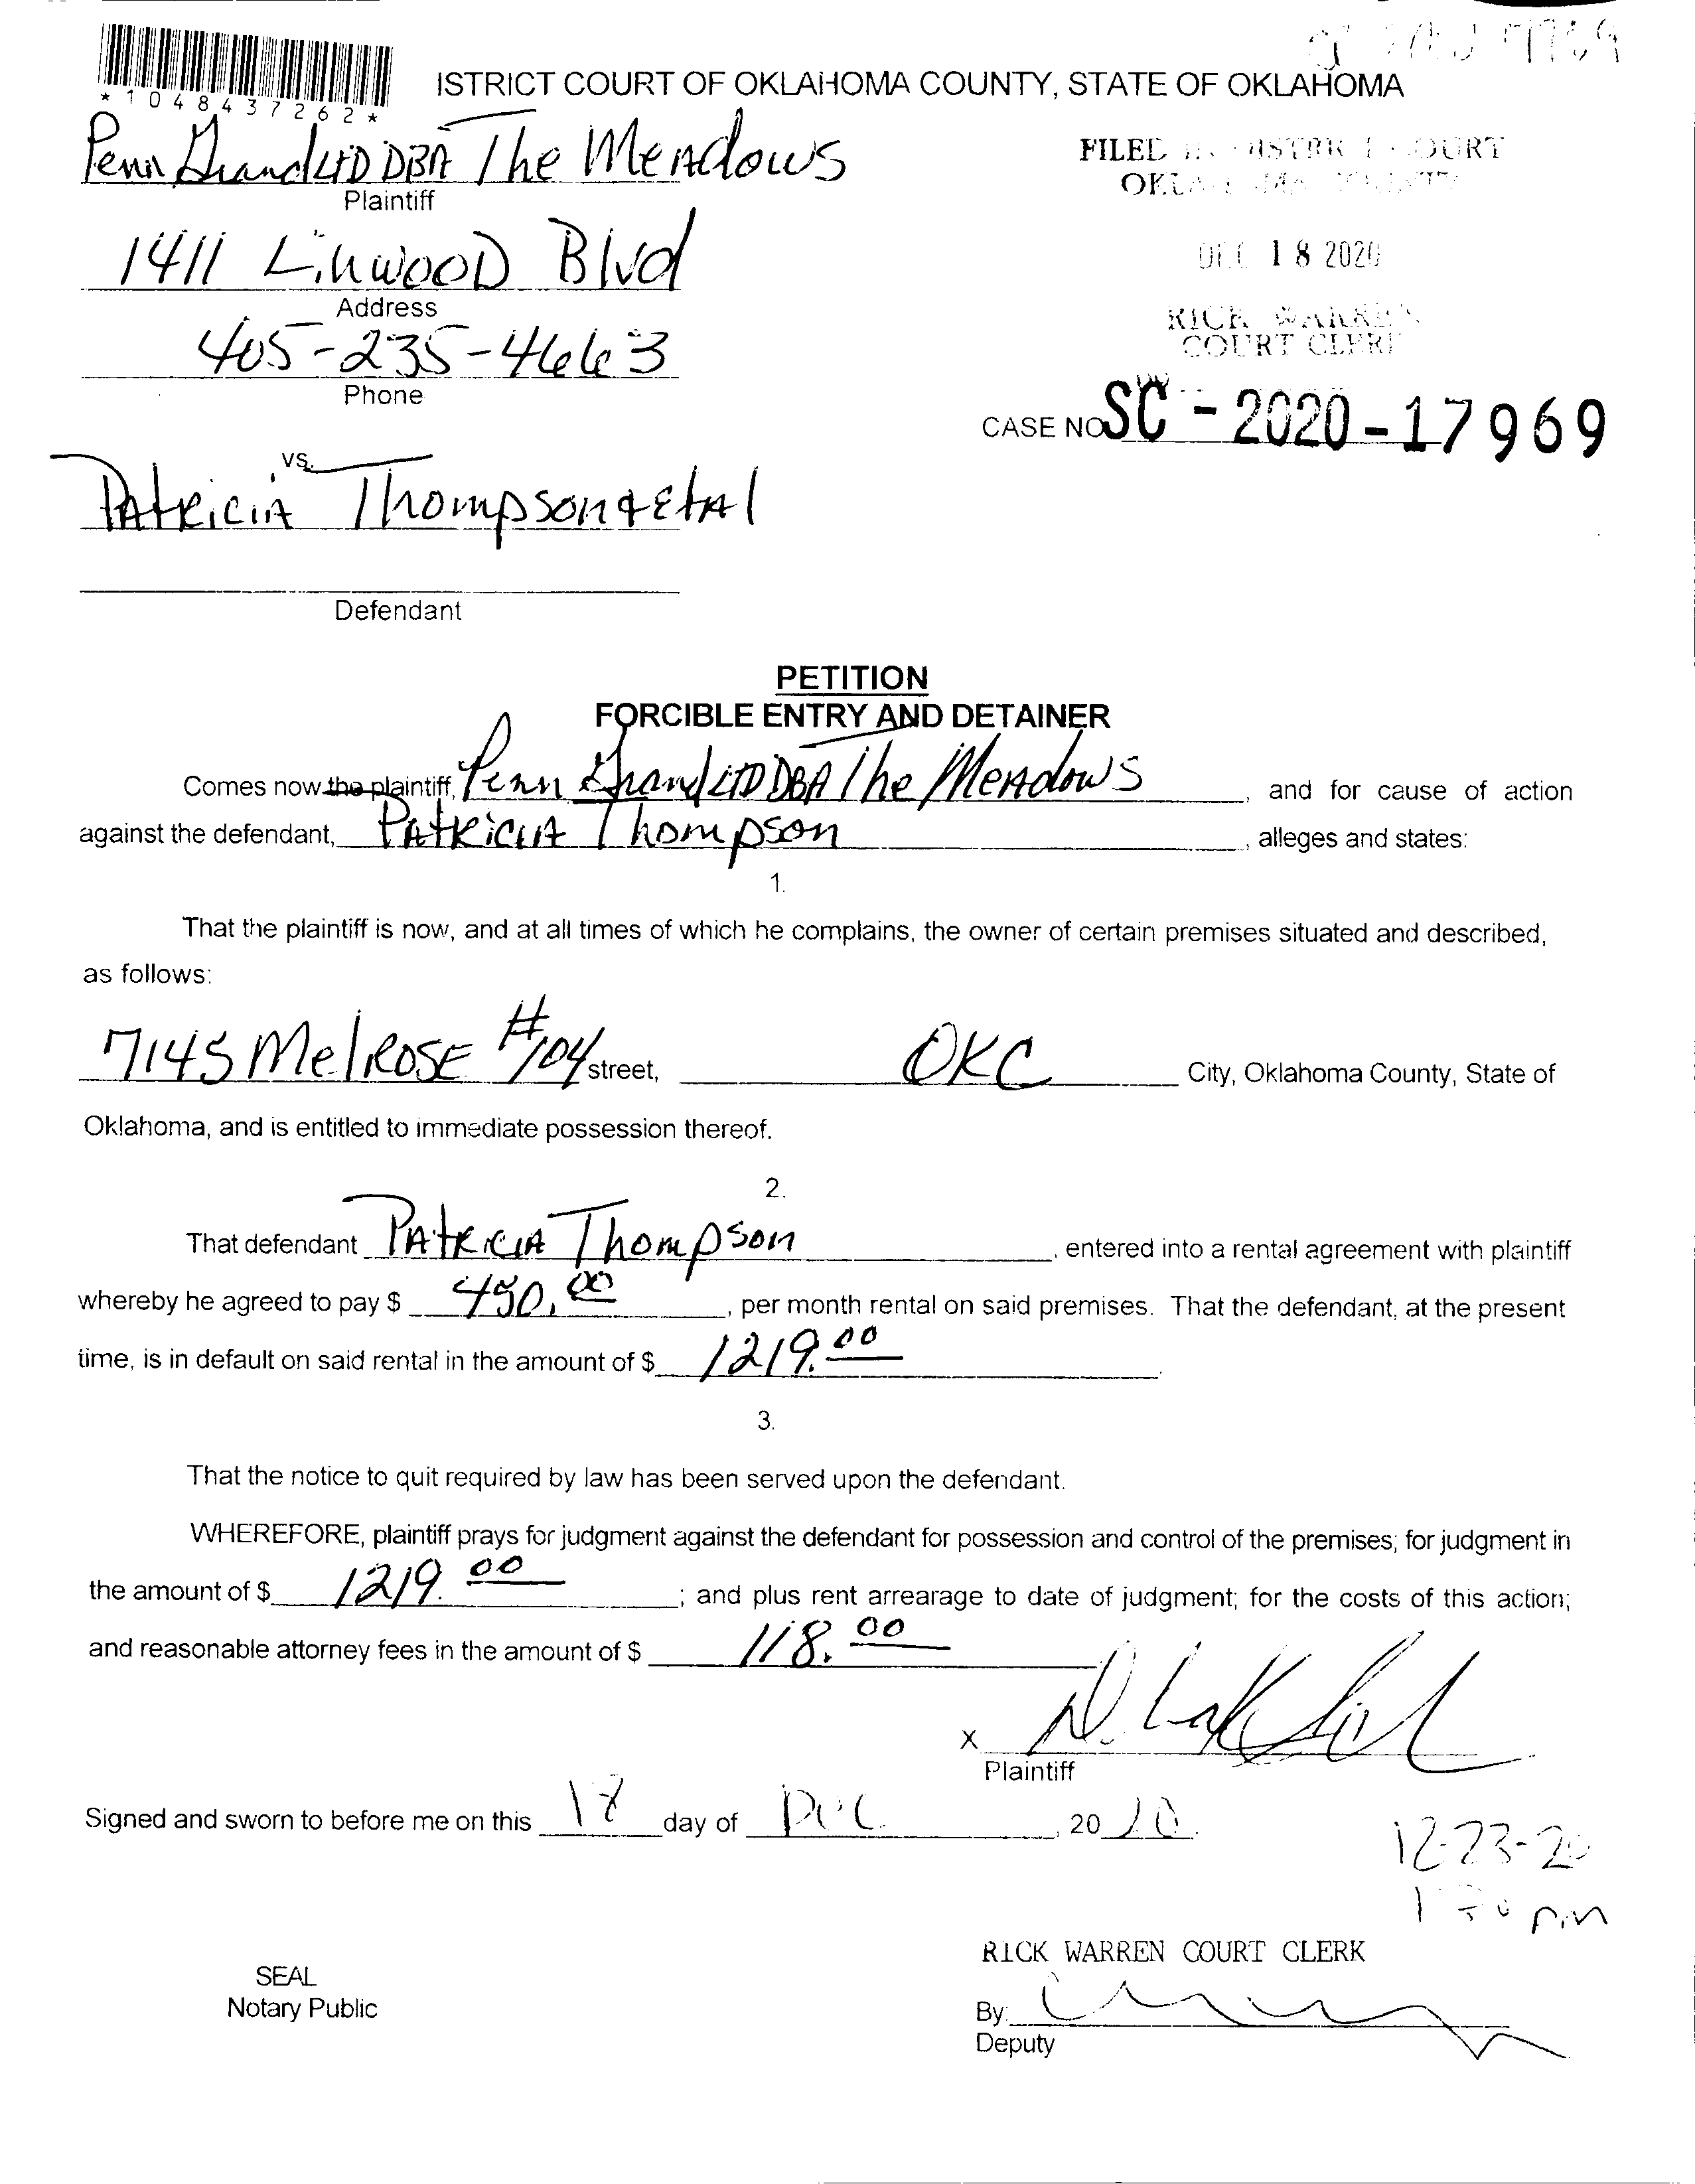 *1048437262*
ISTRICT COURT OF OKLAHOMA COUNTY, STATE OF OKLAHOMA
Penn Grand LTD DBA The Meadows
Plaintiff
FILED DISTRICT COURT
OKLAHOMA COUNTY
1411 Linwood Blvd
Address
DEC 18 2020
405-235-4663
Phone
RICK WARREN
COURT CLERK
CASE NO SC - 2020 - 17969
vs.
Patricia Thompson & Etal
Defendant
PETITION
FORCIBLE ENTRY AND DETAINER
Comes now the plaintiff, Penn Grand LTD DBA The Meadows, and for cause of action
against the defendant, Patricia Thompson, alleges and states:
1.
That the plaintiff is now, and at all times of which he complains, the owner of certain premises situated and described,
as follows:
7145 Melrose #104 street, OKC City, Oklahoma County, State of
Oklahoma, and is entitled to immediate possession thereof.
2.
That defendant Patricia Thompson, entered into a rental agreement with plaintiff
whereby he agreed to pay $ 00, per month rental on said premises. That the defendant, at the present
time, is in default on said rental in the amount of $ 1219.00.
3.
That the notice to quit required by law has been served upon the defendant.
WHEREFORE, plaintiff prays for judgment against the defendant for possession and control of the premises; for judgment in
the amount of $ 1219.00; and plus rent arrearage to date of judgment; for the costs of this action;
and reasonable attorney fees in the amount of $ 118.00
X
Plaintiff
Signed and sworn to before me on this 18 day of Dec, 2020.
12-23-20
pm
RICK WARREN COURT CLERK
SEAL
Notary Public
By:
Deputy